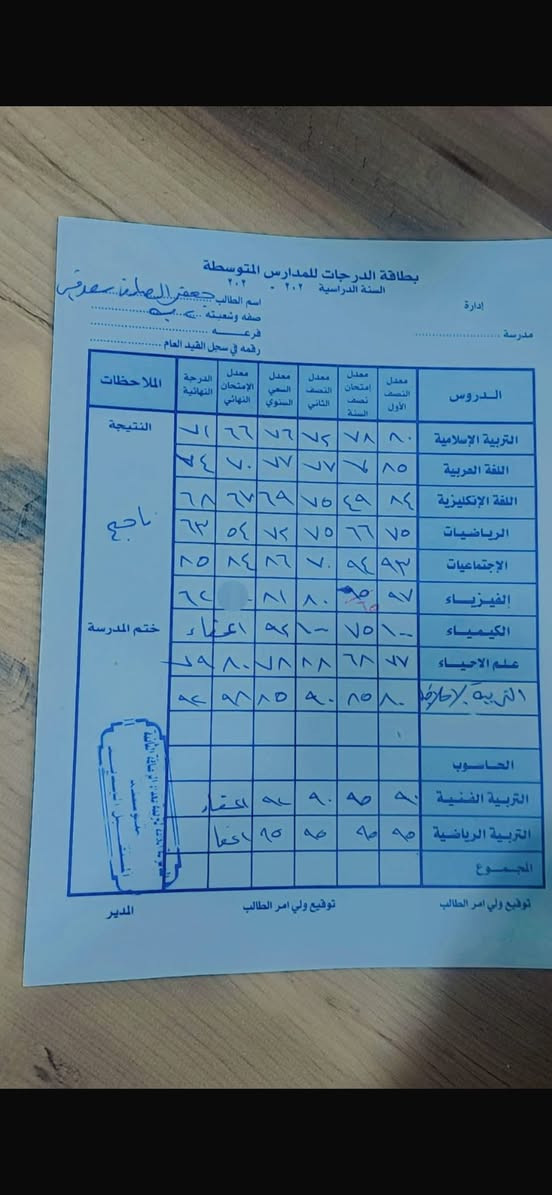 بطاقة الدرجات للمدارس المتوسطة
السنة الدراسية ٢٠٢ - ٢٠٢
إدارة
مدرسة
اسم الطالب جعفر
صفه وشعبته
فرعـــــه
رقمه في سجل القيد العام
الدروس معدل النصف الأول معدل إمتحان نصف السنة معدل النصف الثاني معدل السعي السنوي معدل الإمتحان النهائي الدرجة النهائية الملاحظات
التربية الإسلامية ٨٠ ٧٨ ٧٢ ٧٦ ٦٦ ٧١ النتيجة
اللغة العربية ٨٥ ٧٧ ٧٧ ٧٠ ٧٤
اللغة الإنكليزية ٨٤ ٤٩ ٧٥ ٦٩ ٦٧ ٦٨ ناجح
الرياضيات ٧٥ ٦٦ ٧٥ ٧٢ ٥٤ ٦٣
الإجتماعيات ٩٣ ٩٤ ٧٠ ٨٦ ٨٤ ٨٥
الفيزياء ٩٧ ٨٠ ٨١ ٦٢
الكيمياء ١٠٠ ٧٥ ١٠٠ ٩٢ اعفاء ختم المدرسة
علم الاحياء ٧٧ ٦٨ ٨٨ ٧٨ ٨٠ ٧٩
التربية الاخلاقية ٨٠ ٨٥ ٩٠ ٨٥ ٩٨ ٩٢
الحاسوب
التربية الفنية ٩٠ ٩٥ ٩٠ ٩٢ اعفاء
التربية الرياضية ٩٥ ٩٥ ٩٥ ٩٥ اعفا
المجموع
توقيع ولي امر الطالب توقيع ولي امر الطالب المدير